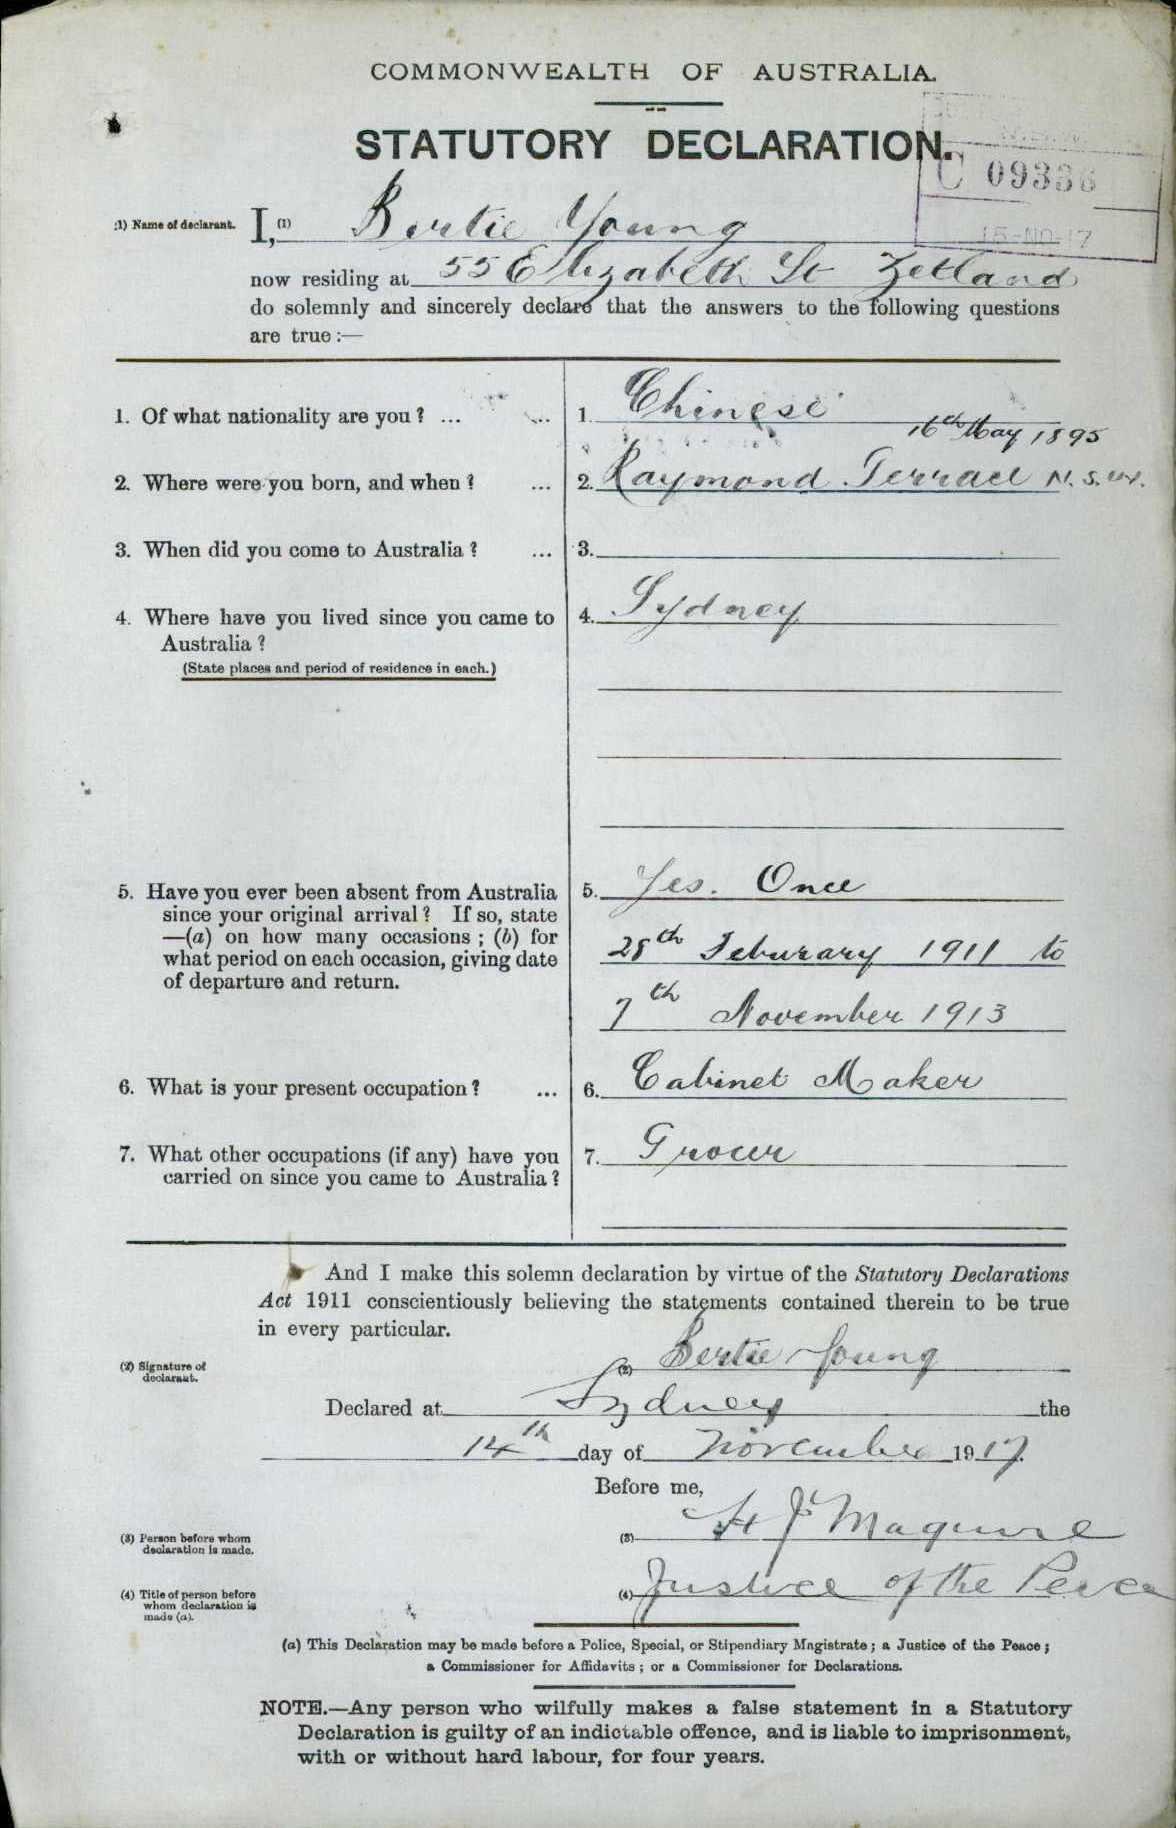 COMMONWEALTH OF AUSTRALIA.
STATUTORY DECLARATION.
C 09336
15-NO-17
(1) Name of declarant. I, (1) Bertie Young
now residing at 55 Elizabeth St Zetland
do solemnly and sincerely declare that the answers to the following questions
are true :—
1. Of what nationality are you ? ... ... 1. Chinese
16th May 1895
2. Where were you born, and when ? ... 2. Raymond Terrace N.S.W.
3. When did you come to Australia ? ... 3.
4. Where have you lived since you came to 4. Sydney
Australia ?
(State places and period of residence in each.)
5. Have you ever been absent from Australia 5. Yes. Once
since your original arrival ? If so, state
—(a) on how many occasions ; (b) for 28th Feburary 1911 to
what period on each occasion, giving date
of departure and return. 7th November 1913
6. What is your present occupation ? ... 6. Cabinet Maker
7. What other occupations (if any) have you 7. Grocer
carried on since you came to Australia ?
And I make this solemn declaration by virtue of the Statutory Declarations
Act 1911 conscientiously believing the statements contained therein to be true
in every particular.
(2) Signature of (2) Bertie Young
declarant.
Declared at Sydney the
14th day of November 1917.
Before me,
(3) Person before whom (3) H J Maguire
declaration is made.
(4) Title of person before (4) Justice of the Peace
whom declaration is
made (a).
(a) This Declaration may be made before a Police, Special, or Stipendiary Magistrate ; a Justice of the Peace ;
a Commissioner for Affidavits ; or a Commissioner for Declarations.
NOTE.—Any person who wilfully makes a false statement in a Statutory
Declaration is guilty of an indictable offence, and is liable to imprisonment,
with or without hard labour, for four years.